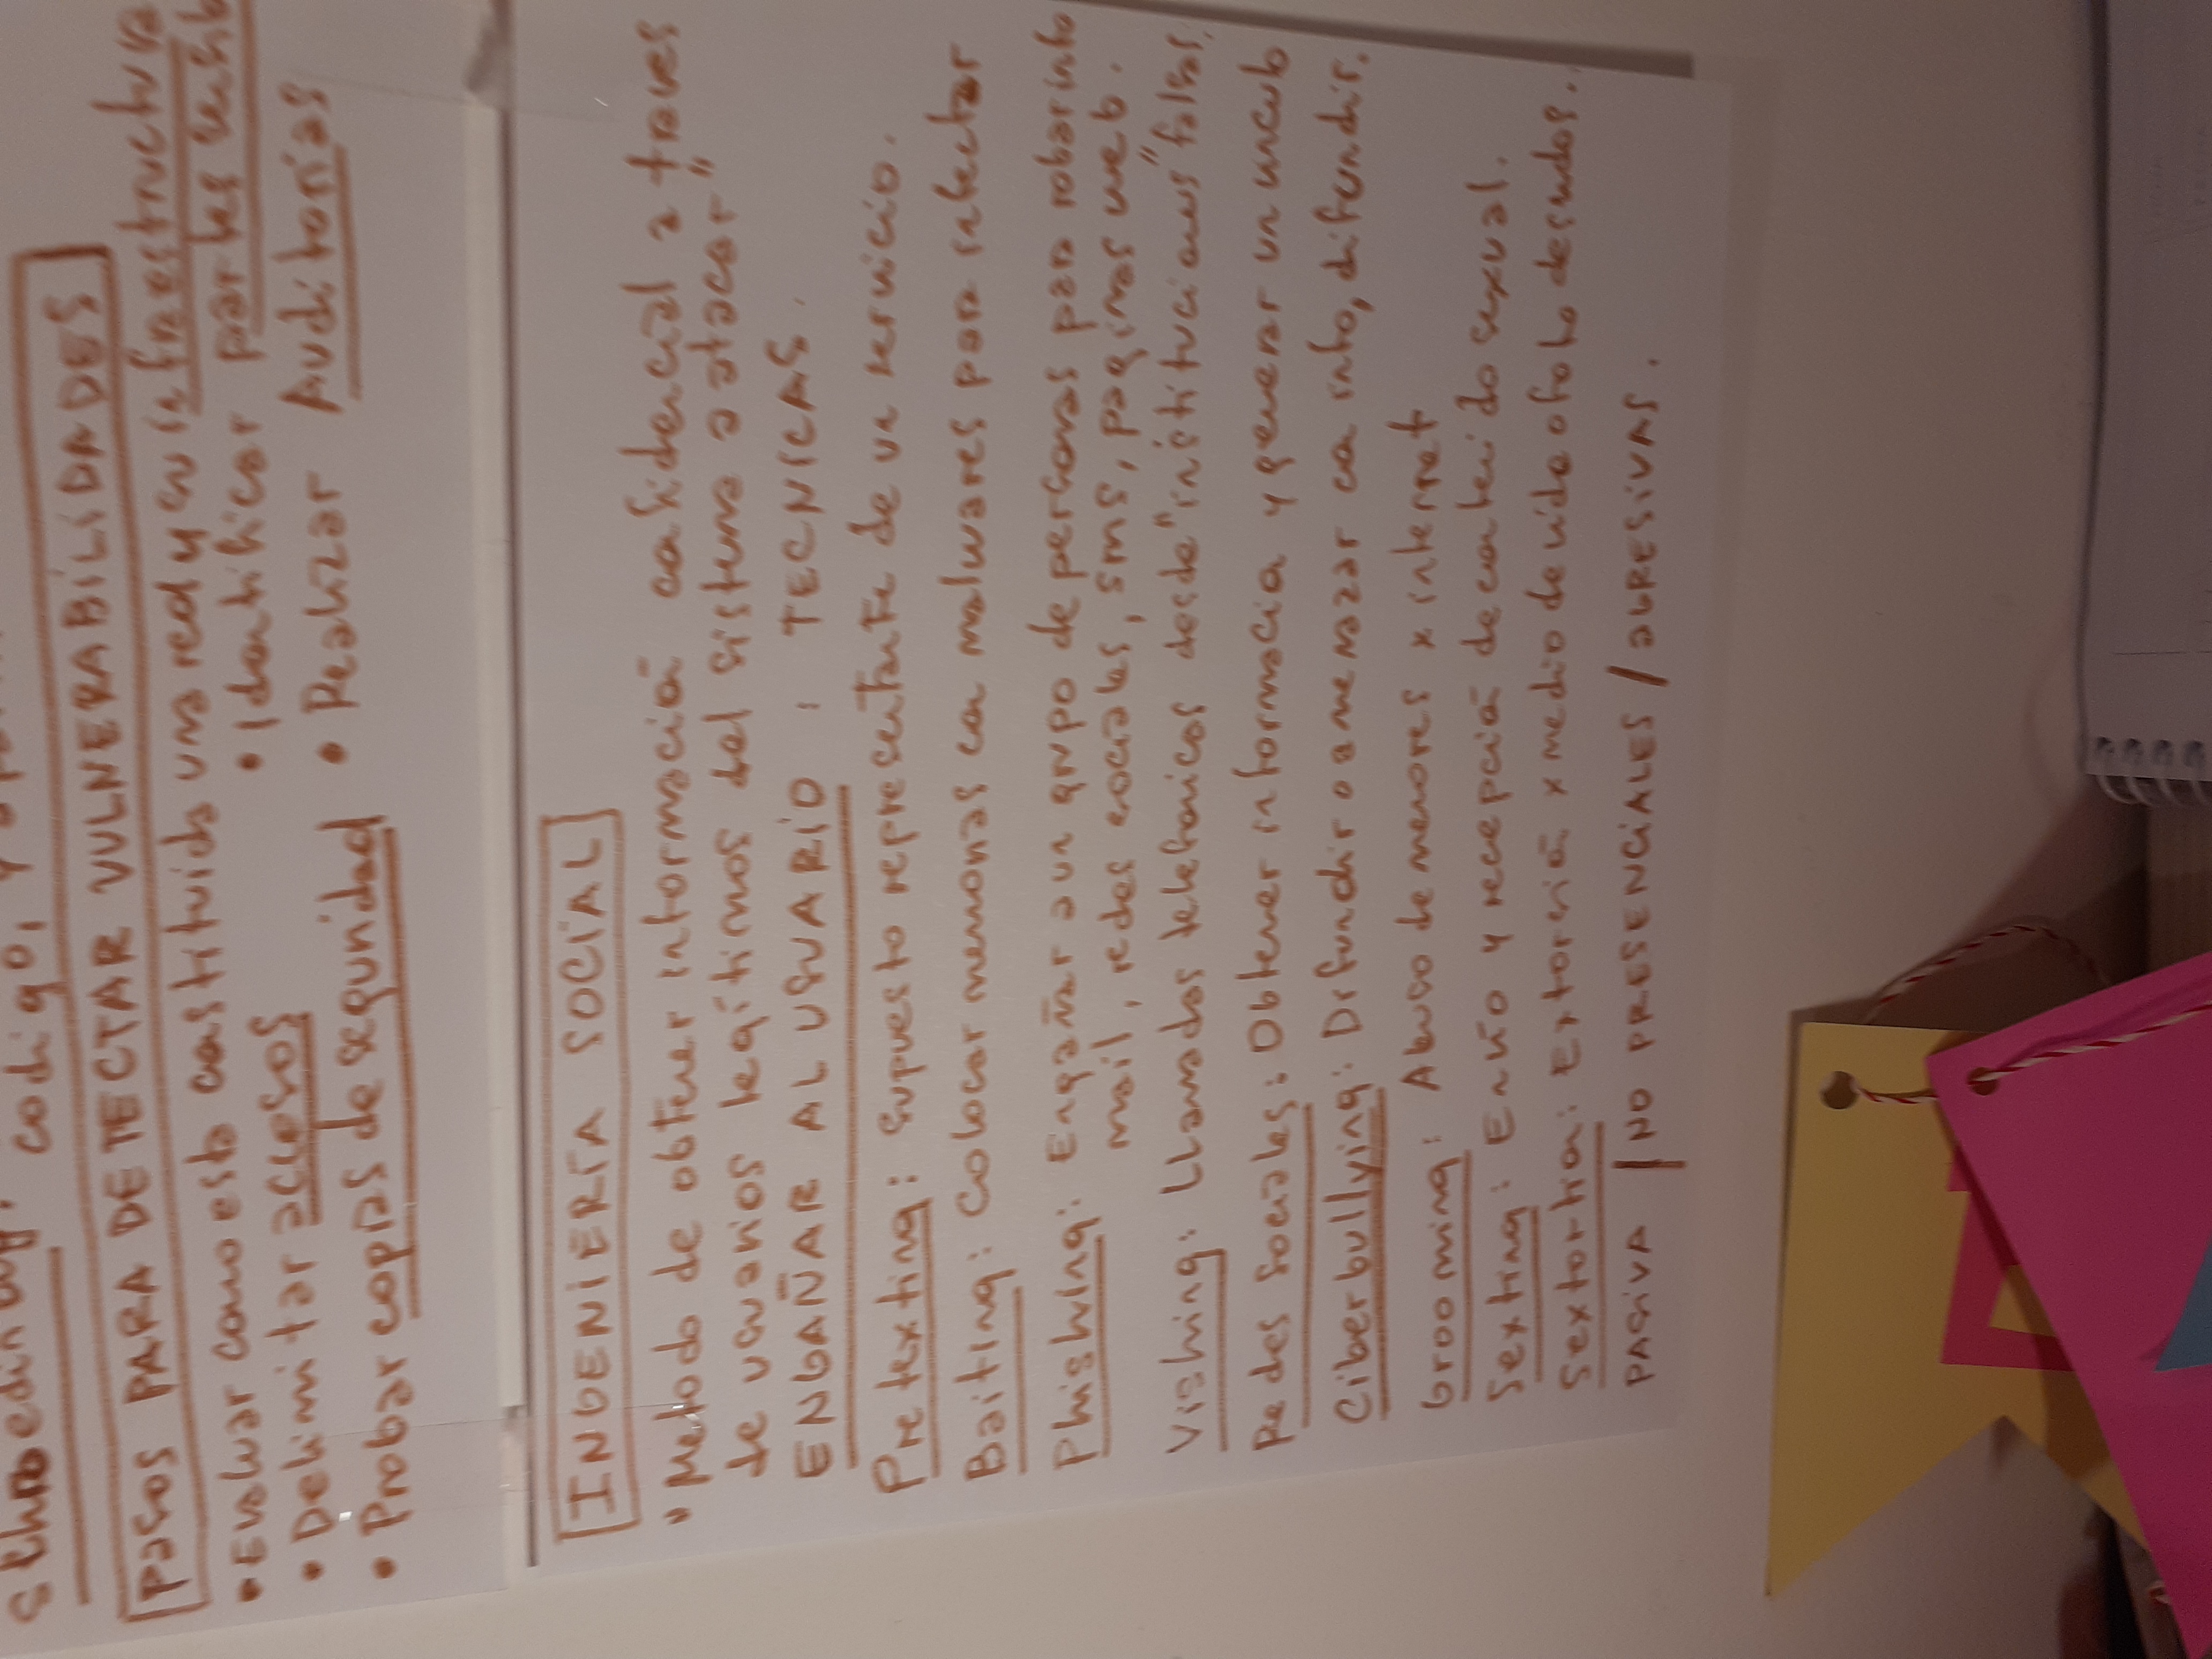 codigo, y
PASOS PARA DETECTAR VULNERABILIDADES
• Evaluar como esta constituida una red y su infraestructura
• Delimitar accesos
• Identificar partes sensib
• Probar copias de seguridad
• Realizar Auditorias
INGENIERÍA SOCIAL
"Metodo de obtener información confidencial a traves
de usuarios legítimos del sistema a atacar"
ENGAÑAR AL USUARIO : TECNICAS.
Pretexting: supuesto representante de un servicio.
Baiting: Colocar memorias con malwares para infectar
Phishing: Engañar a un grupo de personas para robar info
mail, redes sociales, sms, paginas web.
Vishing: Llamados telefonicos desde "instituciones" falsas.
Redes Sociales: Obtener informacion y generar un vinculo
Ciberbullying: Difundir o amenazar con info, difundir.
Grooming: Abuso de menores x internet
Sexting: Envío y recepción de contenido sexual.
Sextortion: Extorsión x medio de video o foto desnudos.
PASIVA / NO PRESENCIALES / AGRESIVAS.